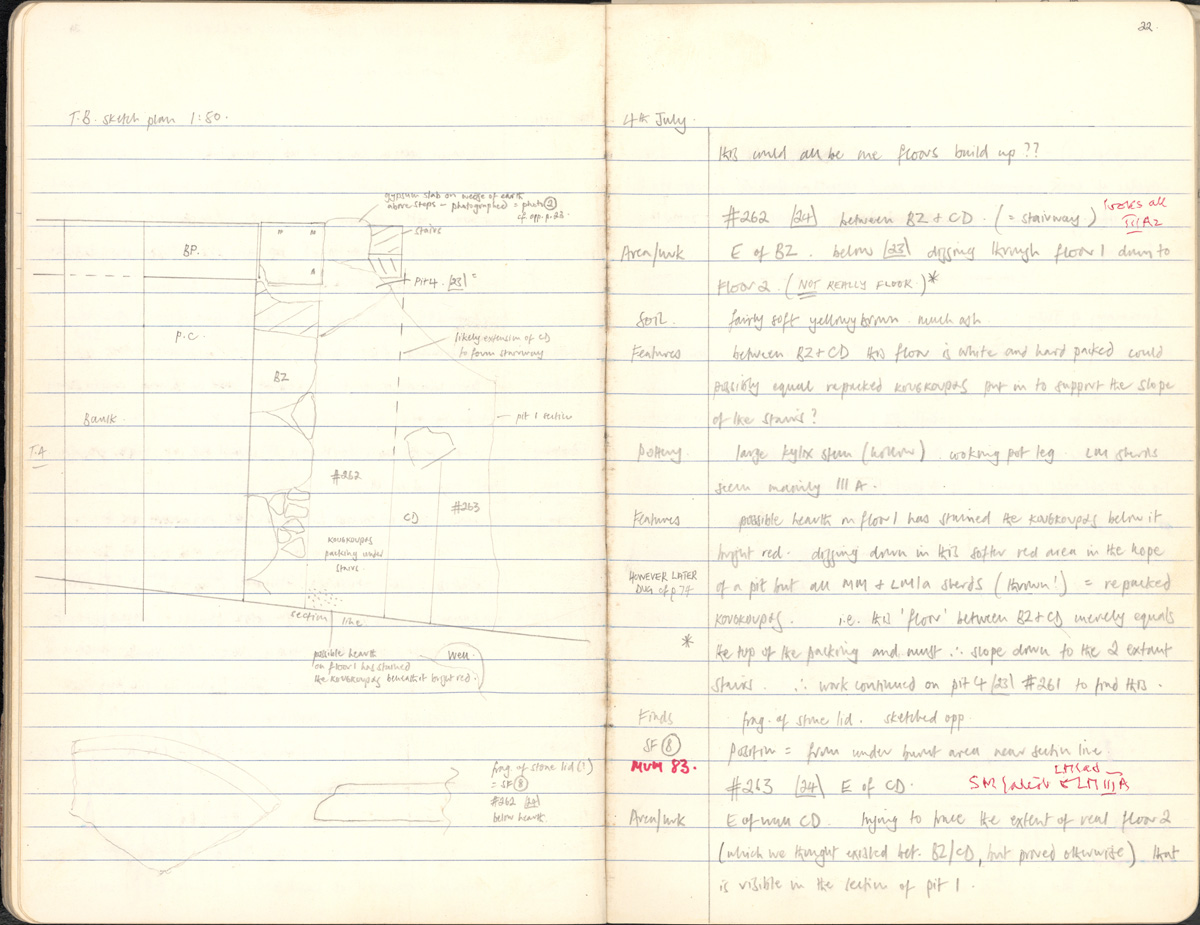 T.B. sketch plan 1:50.
gypsum slab on wedge of earth
above steps – photographed = photo ②
cf. opp. p. 23.
stairs
B.P.
Pit 4. [23]
P.C.
likely extension of CD
to form stairway
BZ
Baulk
pit 1 section
T.A
#262
#263
CD
KOUSKOUPAS
packing under
stairs
section line
possible hearth
on floor 1 has stained
the KOUSKOUPAS beneath it bright red.
Well
frag of stone lid (?)
= SF ⑧
#262 [24]
below hearth.
22.
4th July.
this could all be one floors build up ??
#262 [24] between BZ + CD. (= stairway)
III A2
Area/wk E of BZ. below [23] digging through floor 1 down to
Floor 2. (NOT REALLY FLOOR.)*
Soil. fairly soft yellowy brown. much ash
Features between BZ + CD this floor is white and hard packed could
possibly equal repacked KOUSKOUPAS put in to support the slope
of the stairs?
Pottery. large kylix stem (hollow). cooking pot leg. LM sherds
seem mainly III A.
Features possible hearth on floor 1 has stained the KOUSKOUPAS below it
bright red. digging down in this softer red area in the hope
HOWEVER LATER
DUG cf p 77
of a pit but all MM + LM Ia sherds (thrown!) = repacked
KOUSKOUPAS. i.e. this 'floor' between BZ + CD merely equals
* the top of the packing and must ∴ slope down to the 2 extant
stairs. ∴ work continued on pit 4 [23] #261 to find this.
Finds frag. of stone lid. sketched opp.
SF ⑧ position = from under burnt area near section line.
MUM 83.
#263 [24] E of CD. LM III A
Area/wk E of wall CD. trying to trace the extent of real floor 2
(which we thought existed bet. BZ/CD, but proved otherwise) that
is visible in the section of pit 1.